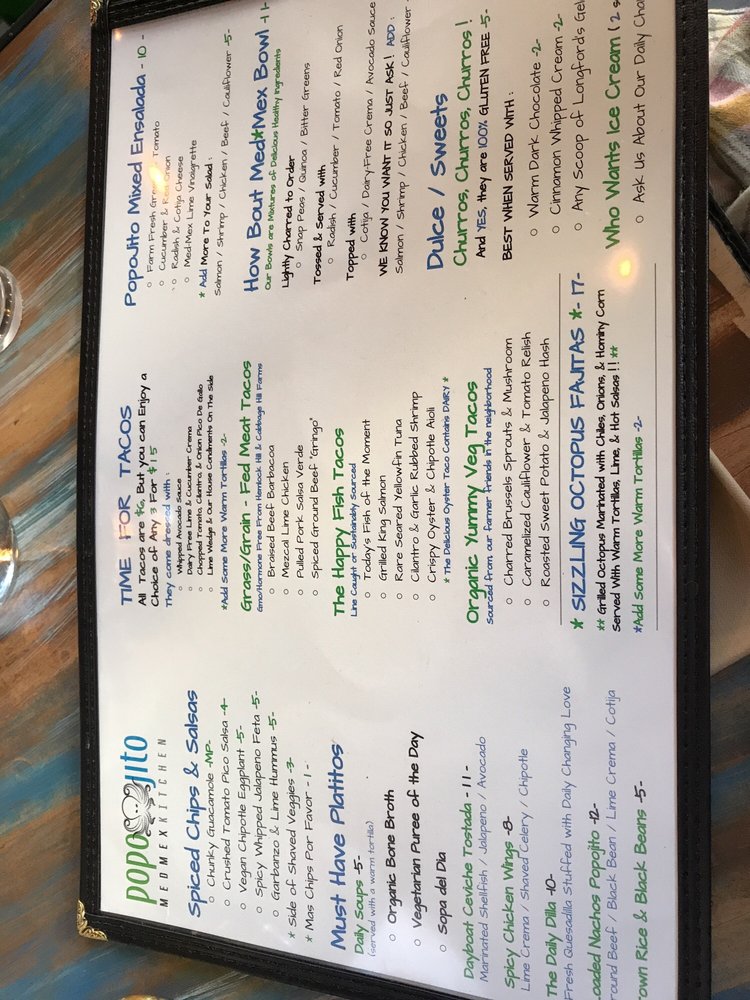 popojito
MEDMEXKITCHEN
Spiced Chips & Salsas
○ Chunky Guacamole -MP-
○ Crushed Tomato Pico Salsa -4-
○ Vegan Chipotle Eggplant -5-
○ Spicy Whipped Jalapeno Feta -5-
○ Garbanzo & Lime Hummus -5-
* Side of Shaved Veggies -3-
* Mas Chips Por Favor -1-
Must Have Platitos
Daily Soups -5-
(served with a warm tortilla)
○ Organic Bone Broth
○ Vegetarian Puree of the Day
○ Sopa del Dia
Dayboat Ceviche Tostada -11-
Marinated Shellfish / Jalapeno / Avocado
Spicy Chicken Wings -8-
Lime Crema / Shaved Celery / Chipotle
The Daily Dilla -10-
Fresh Quesadilla Stuffed with Daily Changing Love
oaded Nachos Popojito -12-
ound Beef / Black Bean / Lime Crema / Cotija
own Rice & Black Beans -5-
TIME FOR TACOS
All Tacos are $6, But you can Enjoy a
Choice of Any 3 For $15
They come dressed with :
○ Whipped Avocado Sauce
○ Dairy Free Lime & Cucumber Crema
○ Chopped Tomato, Cilantro, & Onion Pico De Gallo
○ Lime Wedge & Our House Condiments On The Side
*Add Some More Warm Tortillas -2-
Grass/Grain - Fed Meat Tacos
Gmo/Hormone Free From Hemlock Hill & Cabbage Hill Farms
○ Braised Beef Barbacoa
○ Mezcal Lime Chicken
○ Pulled Pork Salsa Verde
○ Spiced Ground Beef "Gringo"
The Happy Fish Tacos
Line Caught or Sustainably Sourced
○ Today's Fish of the Moment
○ Grilled King Salmon
○ Rare Seared Yellowfin Tuna
○ Cilantro & Garlic Rubbed Shrimp
○ Crispy Oyster & Chipotle Aioli
* The Delicious Oyster Taco Contains DAIRY *
Organic Yummy Veg Tacos
Sourced from our farmer friends in the neighborhood
○ Charred Brussels Sprouts & Mushroom
○ Caramelized Cauliflower & Tomato Relish
○ Roasted Sweet Potato & Jalapeno Hash
* SIZZLING OCTOPUS FAJITAS *- 17-
** Grilled Octopus Marinated with Chiles, Onions, & Hominy Corn
Served With Warm Tortillas, Lime, & Hot Salsas !! **
*Add Some More Warm Tortillas -2-
PopoJito Mixed Ensalada - 10 -
○ Farm Fresh Tomato
○ Cucumber & Red Onion
○ Radish & Cotija Cheese
○ Med-Mex Lime Vinaigrette
* Add More To Your Salad :
Salmon / Shrimp / Chicken / Beef / Cauliflower -5-
How Bout Med*Mex Bowl -11-
Our Bowls are Mixtures of Delicious Healthy Ingredients
Lightly Charred to Order
○ Snap Peas / Quinoa / Bitter Greens
Tossed & Served with
○ Radish / Cucumber / Tomato / Red Onion
Topped with
○ Cotija / Dairy-Free Crema / Avocado Sauce
WE KNOW YOU WANT IT SO JUST ASK! ADD :
Salmon / Shrimp / Chicken / Beef / Cauliflower -
Dulce / Sweets
Churros, Churros, Churros !
And YES, they are 100% GLUTEN FREE -5-
BEST WHEN SERVED WITH :
○ Warm Dark Chocolate -2-
○ Cinnamon Whipped Cream -2-
○ Any Scoop of Longford's Gel
Who Wants Ice Cream ( 2 s
○ Ask Us About Our Daily Cha